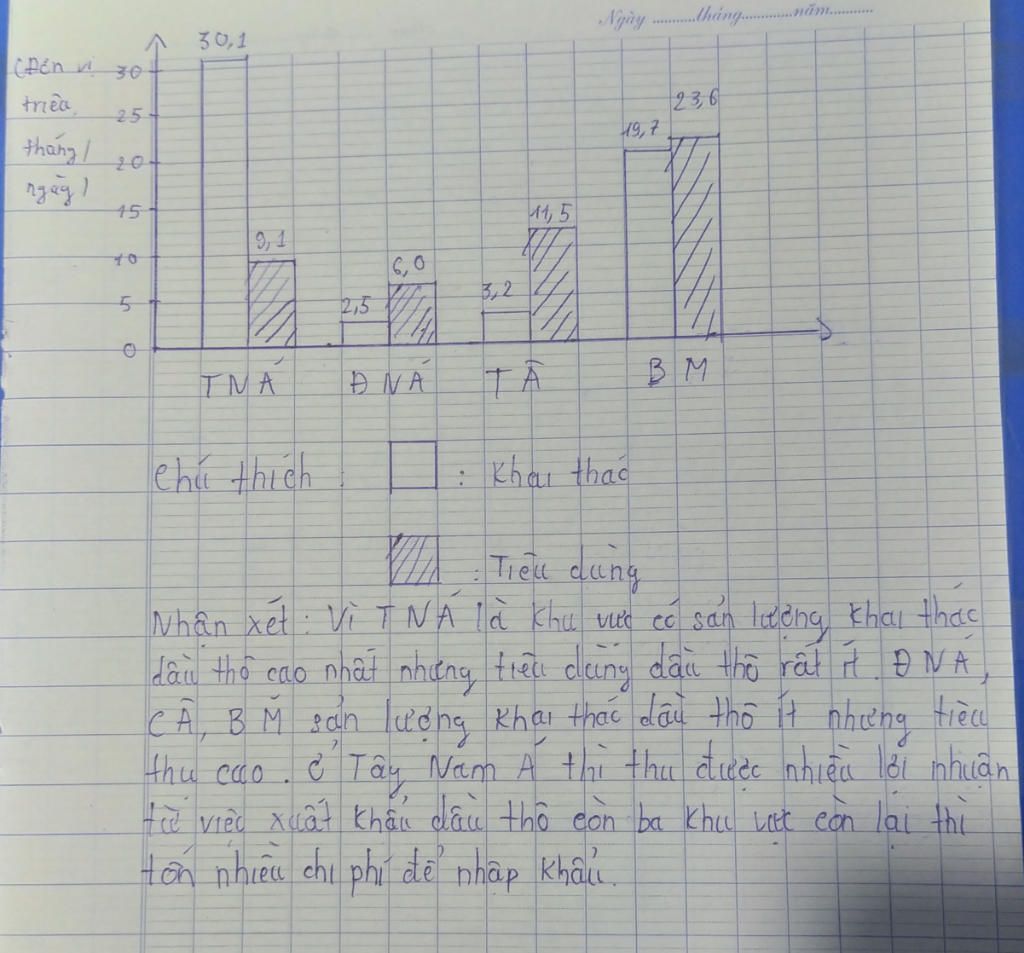 Ngày ...........tháng.............năm...........
(Đơn vị
triệu
tháng/
ngày)
30,1
30
25
20
15
10
5
0
9,1
2,5
6,0
3,2
11,5
19,7
23,6
TNÁ ĐNÁ TÂ BM
Chú thích : : Khai thác
: Tiêu dùng
Nhận xét : Vì TNÁ là khu vực có sản lượng khai thác
dầu thô cao nhất nhưng tiêu dùng dầu thô rất ít. ĐNÁ,
CÂ, BM sản lượng khai thác dầu thô ít nhưng tiêu
thu cao. Ở Tây Nam Á thì thu được nhiều lời nhuận
từ việc xuất khẩu dầu thô còn ba khu vực còn lại thì
tốn nhiều chi phí để nhập khẩu.